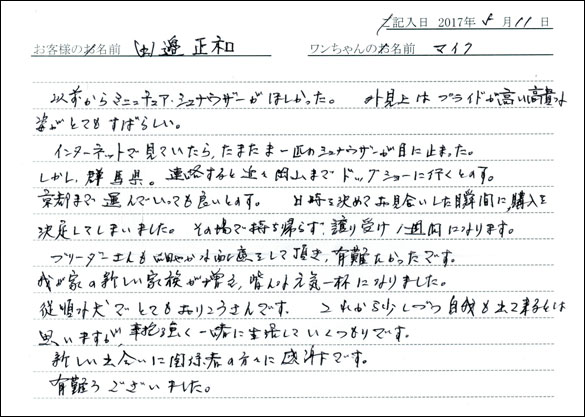 ご記入日 2017年 5月 11日
お客様のお名前 田邉 正和 ワンちゃんのお名前 マイク
以前からミニュチュア・シュナウザーがほしかった。 外見上はプライドが高い高貴な
姿がとてもすばらしい。
インターネットで見ていたら、たまたま一匹のシュナウザーが目に止まった。
しかし、群馬県。 連絡すると近く岡山までドッグショーに行くとの事。
京都まで運んでいっても良いとの事。 日時を決めてお見合いした瞬間に、購入を
決定してしまいました。 その場で持ち帰らず、譲り受け1週間になります。
ブリーダーさんも 面 をして頂き、有難たかったです。
我が家の新しい家族が増え、皆んな元気一杯になりました。
従順な犬でとてもおりこうさんです。 これから少しづつ自我も出て来るとは
思いますが、辛抱強く一緒に生活していくつもりです。
新しい出会いに関係者の方々に感謝です。
有難うございました。